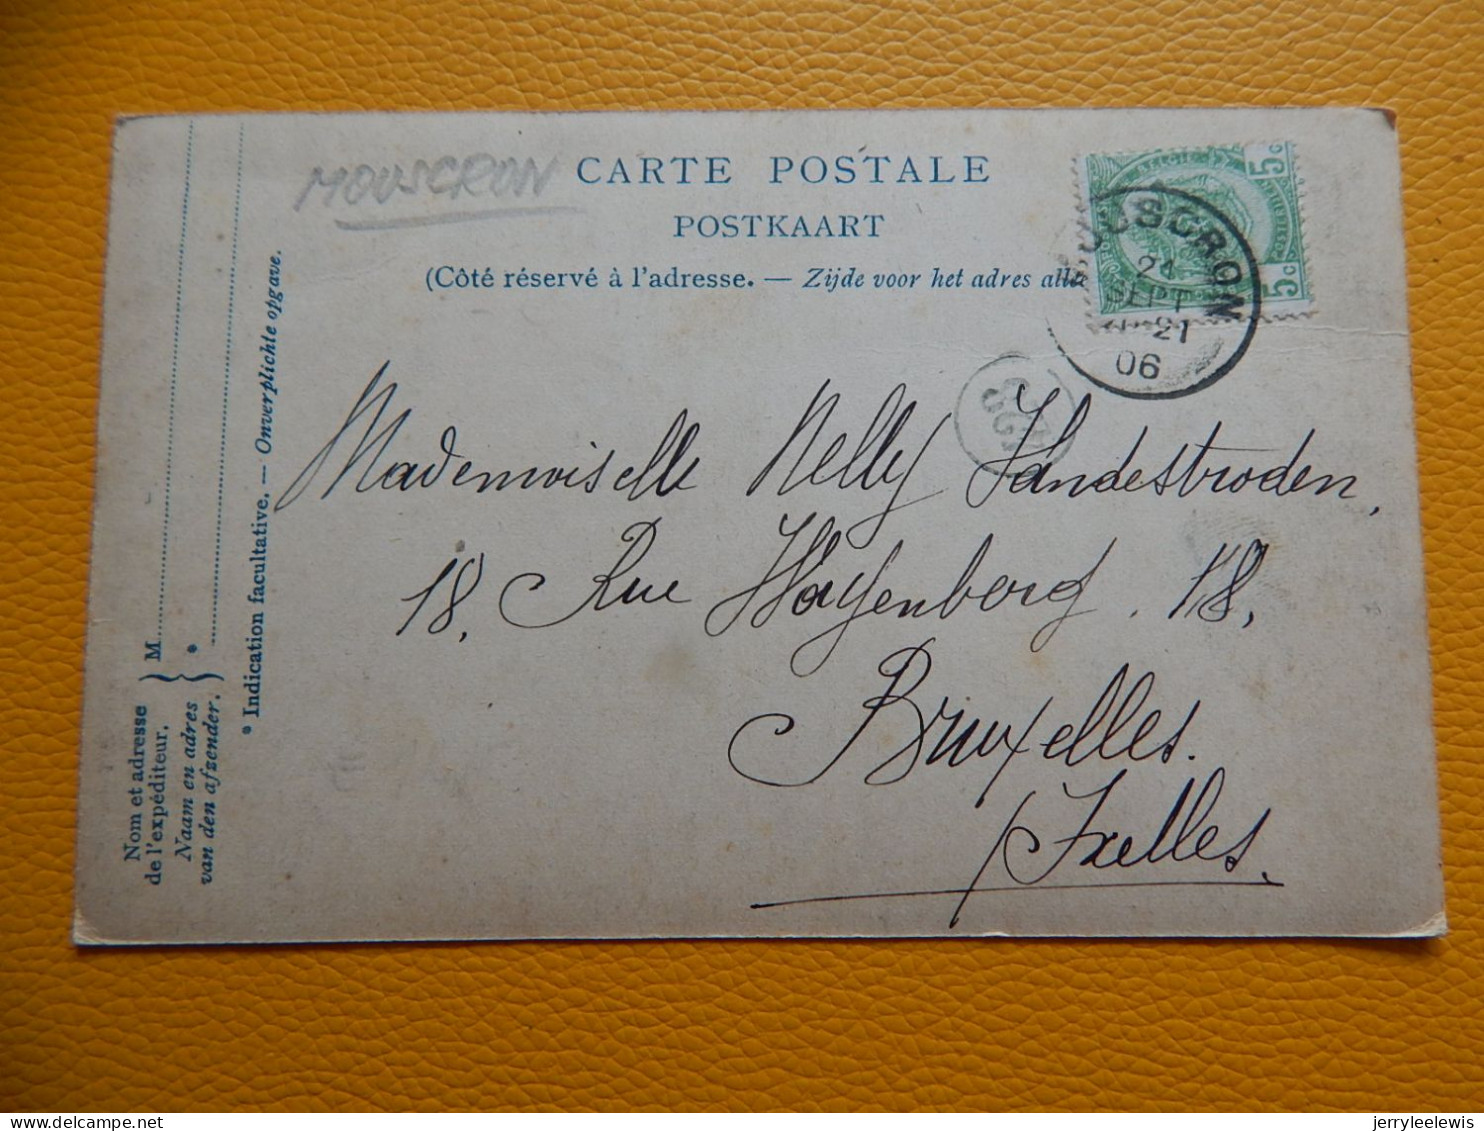 MOUSCRON
CARTE POSTALE
POSTKAART
(Côté réservé à l'adresse. — Zijde voor het adres all
BELGIE
5c
5c
MOUSCRON
SEPT
21
06
Mademoiselle Nelly Vandestroden,
18, Rue Wayenberg. 18,
Bruxelles.
Ixelles.
Nom et adresse
de l'expéditeur.
Naam en adres
van den afzender.
M
*
* Indication facultative. — Onverplichte opgave.
jerryleelewis